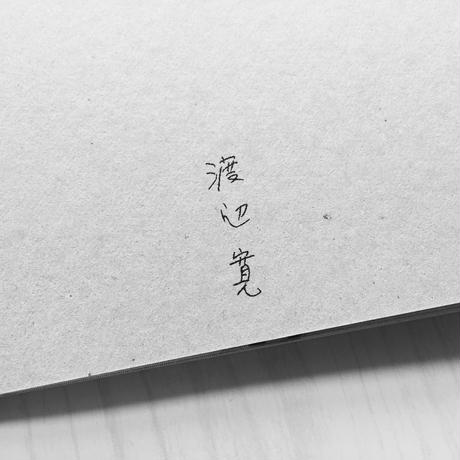 渡辺寛